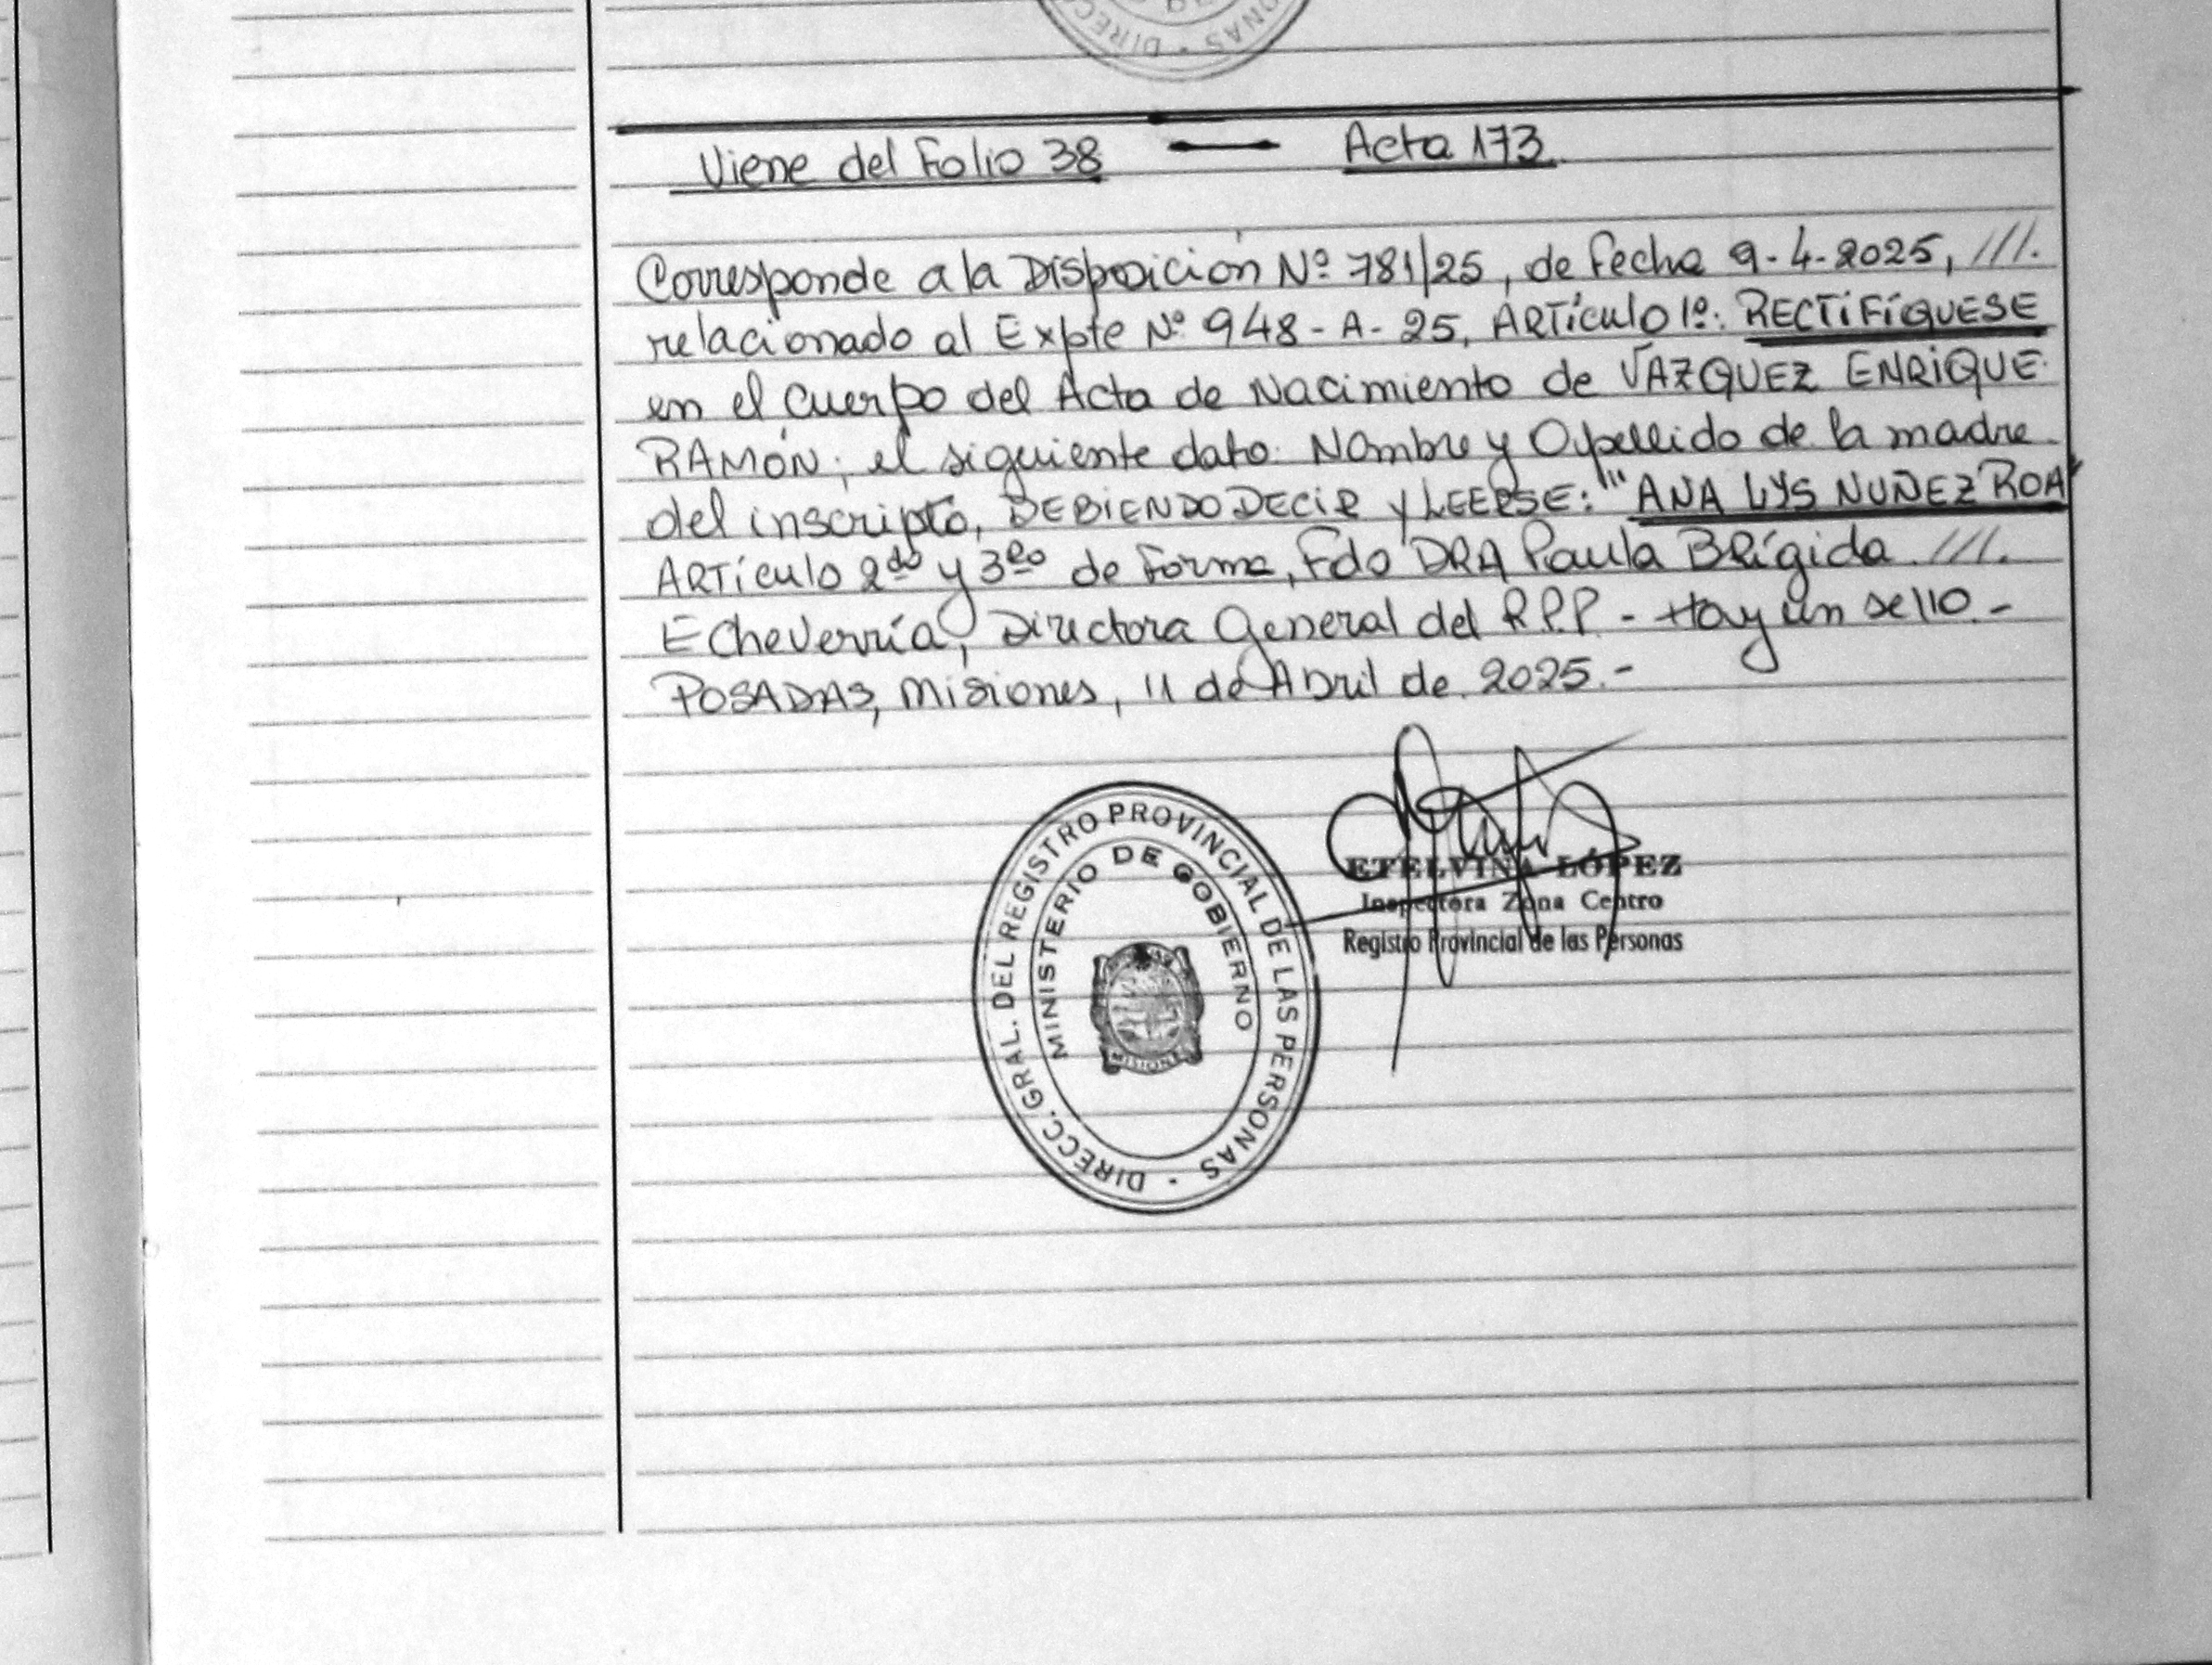 DIRECC
ONAS
Viene del Folio 38 — Acta 173.
Corresponde a la Disposición Nº 781/25, de fecha 9-4-2025, ///.
relacionado al Expte Nº 948-A-25, ARTÍCULO 1º: RECTIFÍQUESE
en el cuerpo del Acta de Nacimiento de VAZQUEZ ENRIQUE
RAMÓN; el siguiente dato: Nombre y Apellido de la madre
del inscripto, DEBIENDO DECIR y LEERSE: "ANA LYS NUÑEZ ROA"
ARTÍCULO 2do y 3ro de forma, Fdo DRA Paula Brígida ///.
Echeverría, Directora General del R.P.P. - Hay un sello.-
POSADAS, Misiones, 11 de Abril de 2025.-
DIRECC. GRAL. DEL REGISTRO PROVINCIAL DE LAS PERSONAS
MINISTERIO DE GOBIERNO
MISIONES
ETELVINA LÓPEZ
Inspectora Zona Centro
Registro Provincial de las Personas